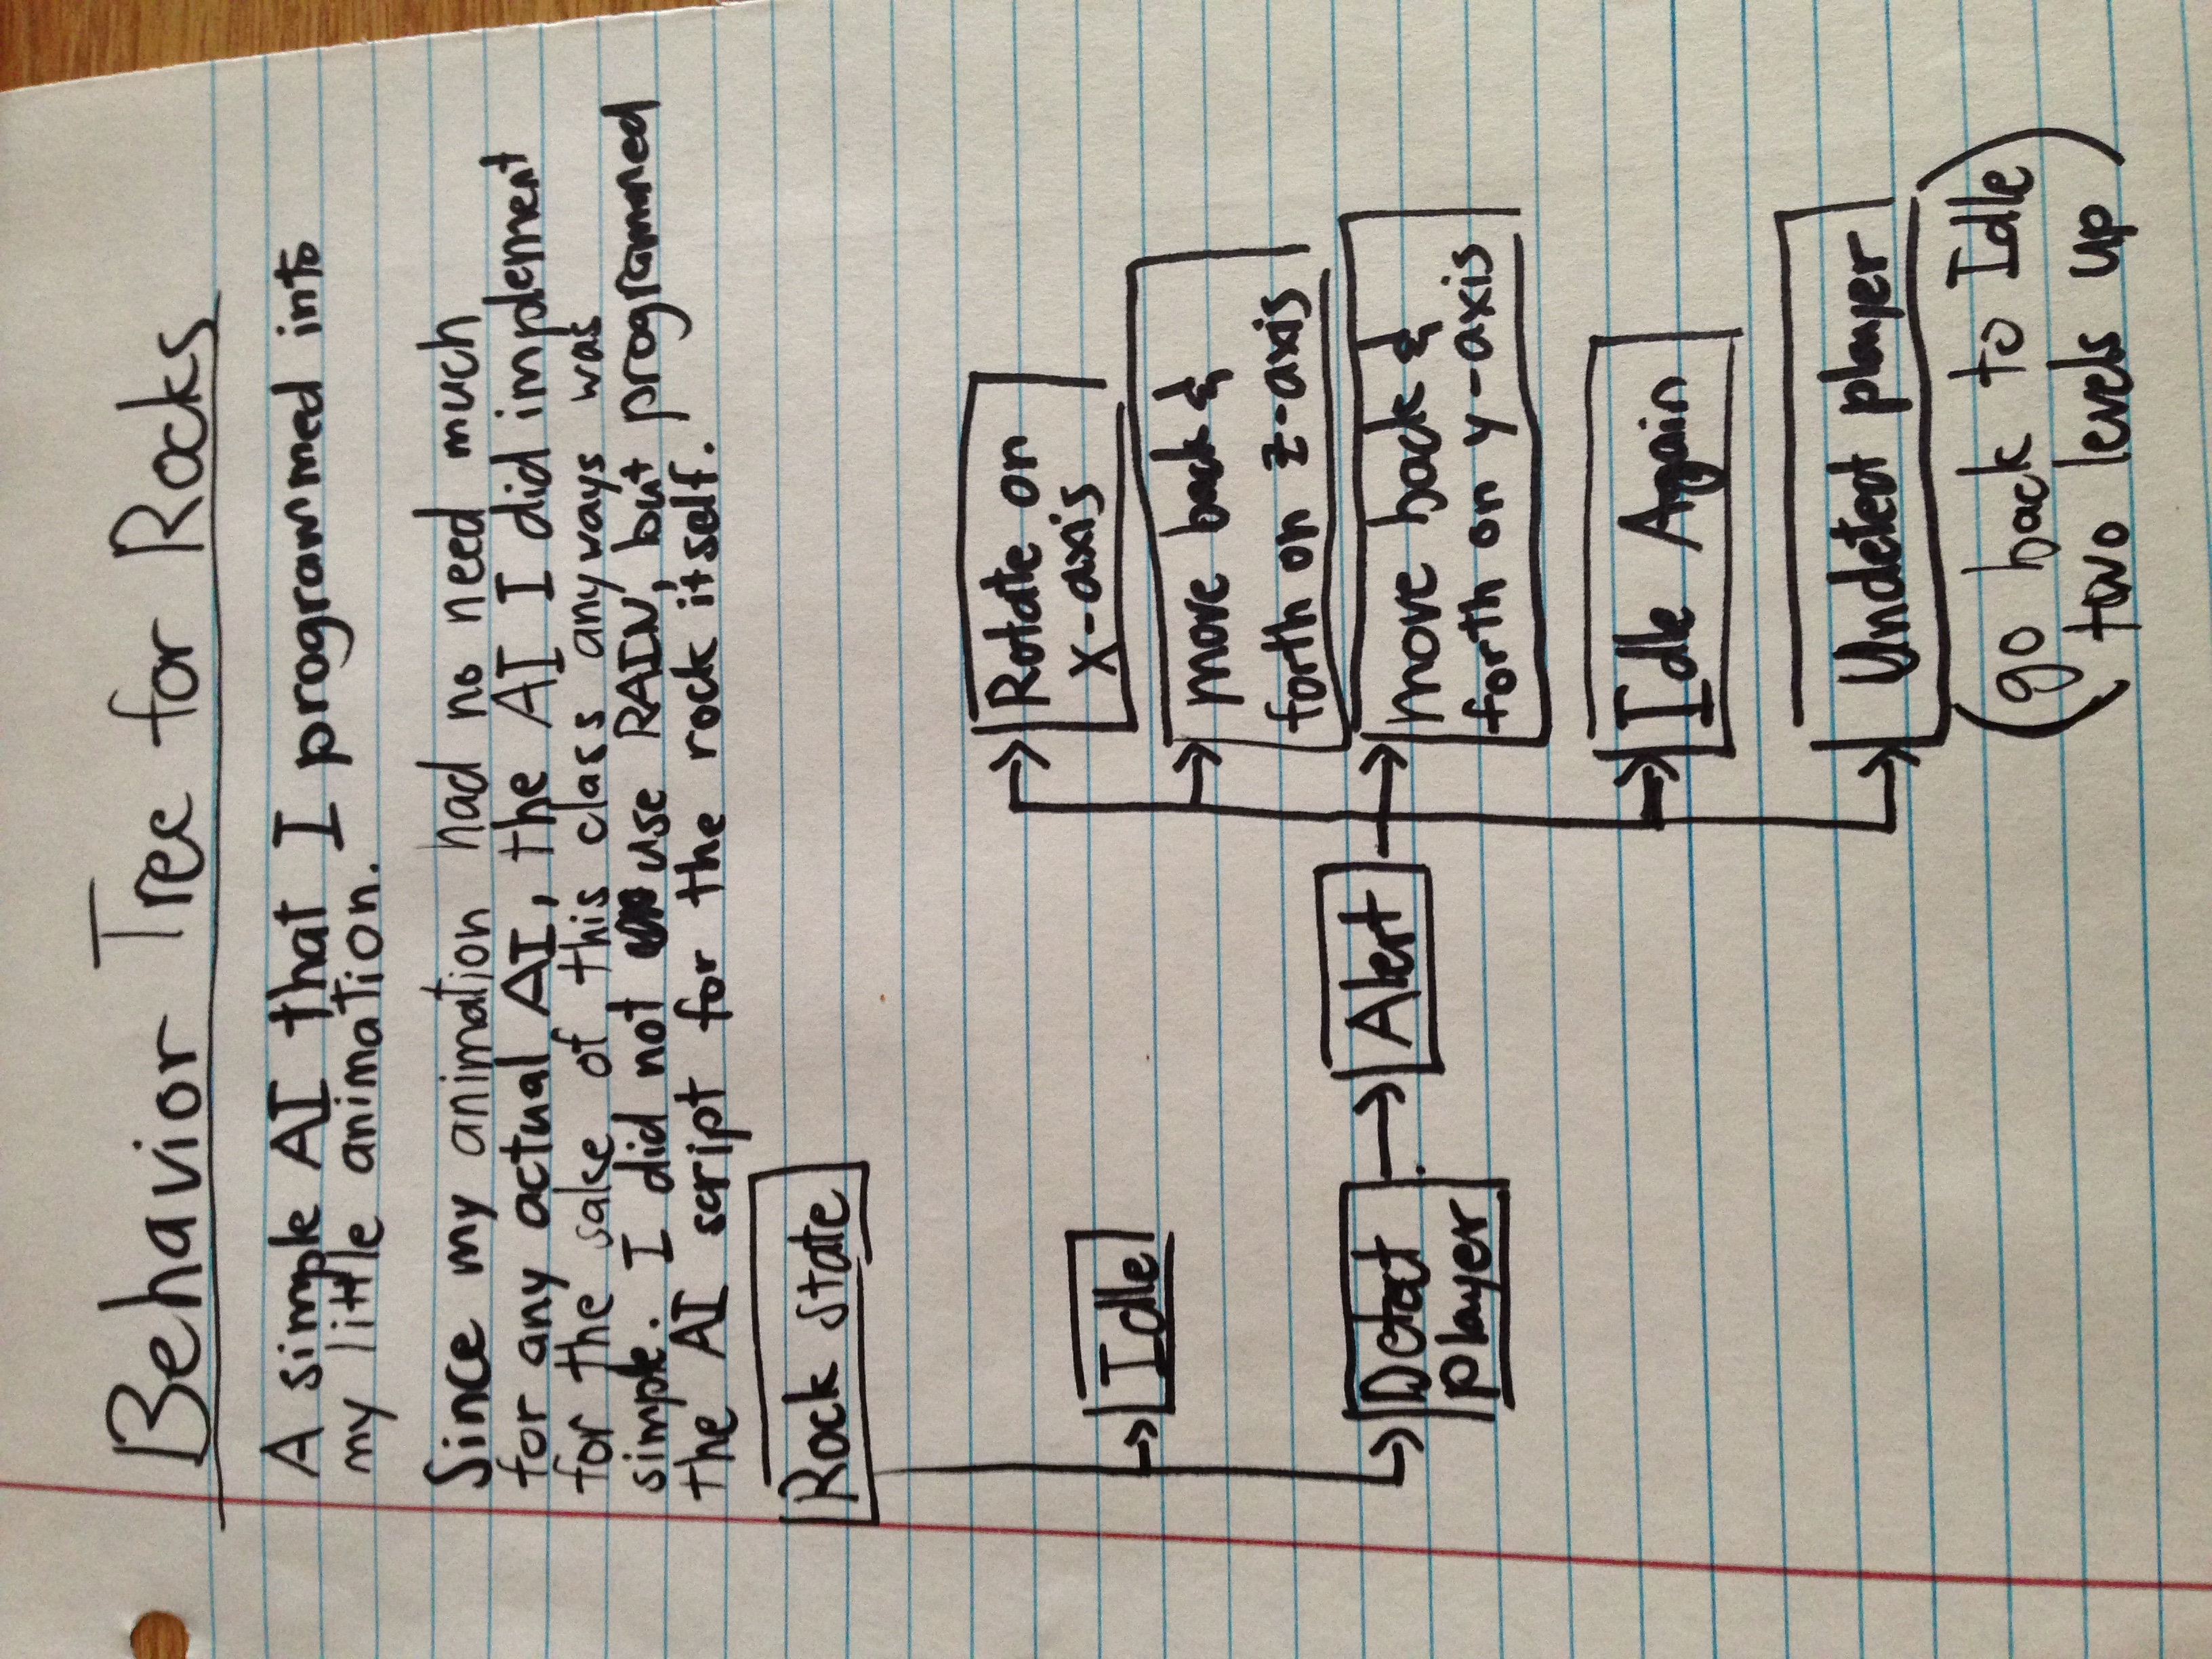 Behavior Tree for Rocks
A simple AI that I programmed into
my little animation.
Since my animation had no need much
for any actual AI, the AI I did implement
for the sake of this class anyways was
simple. I did not use RAIN, but programmed
the AI script for the rock itself.
Rock State
Rotate on
x-axis
Idle
move back &
forth on z-axis
Detect
player
Alert
move back &
forth on y-axis
Idle Again
Undetect player
(go back to Idle
two levels up)